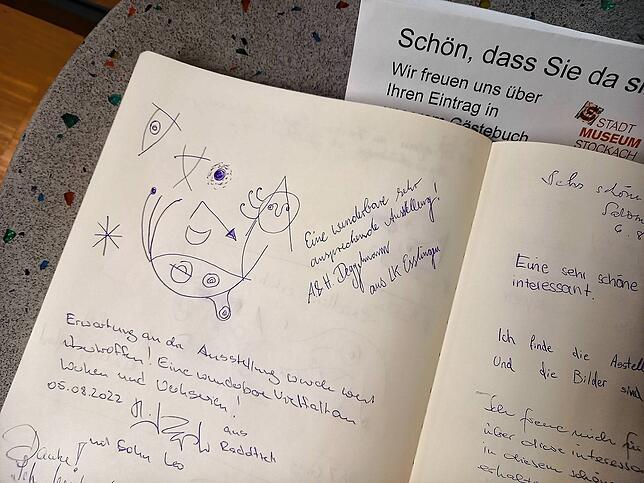 Schön, dass Sie da si
Wir freuen uns über
Ihren Eintrag in
Gästebuch
STADT
MUSEUM
STOCKACH
Eine wunderbare sehr
ansprechende Ausstellung!
A&H. Deggelmann
aus LK Esslingen
Erwartung an die Ausstellung wurde weit
übertroffen! Eine wunderbare Vielfalt an
Werken und
05.08.2022
aus
mit Sohn Leo
Danke!
Sehr schön
6.8
Eine sehr schöne
interessant.
Ich finde die Ausstell
Und die Bilder sind
Ich freue mich für
über diese interessa
in diesem schöne
erhalte